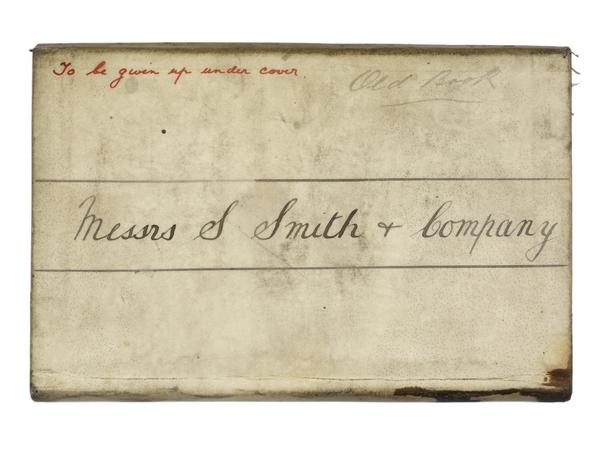 To be given up under cover.
Old Book
Messrs S Smith + Company